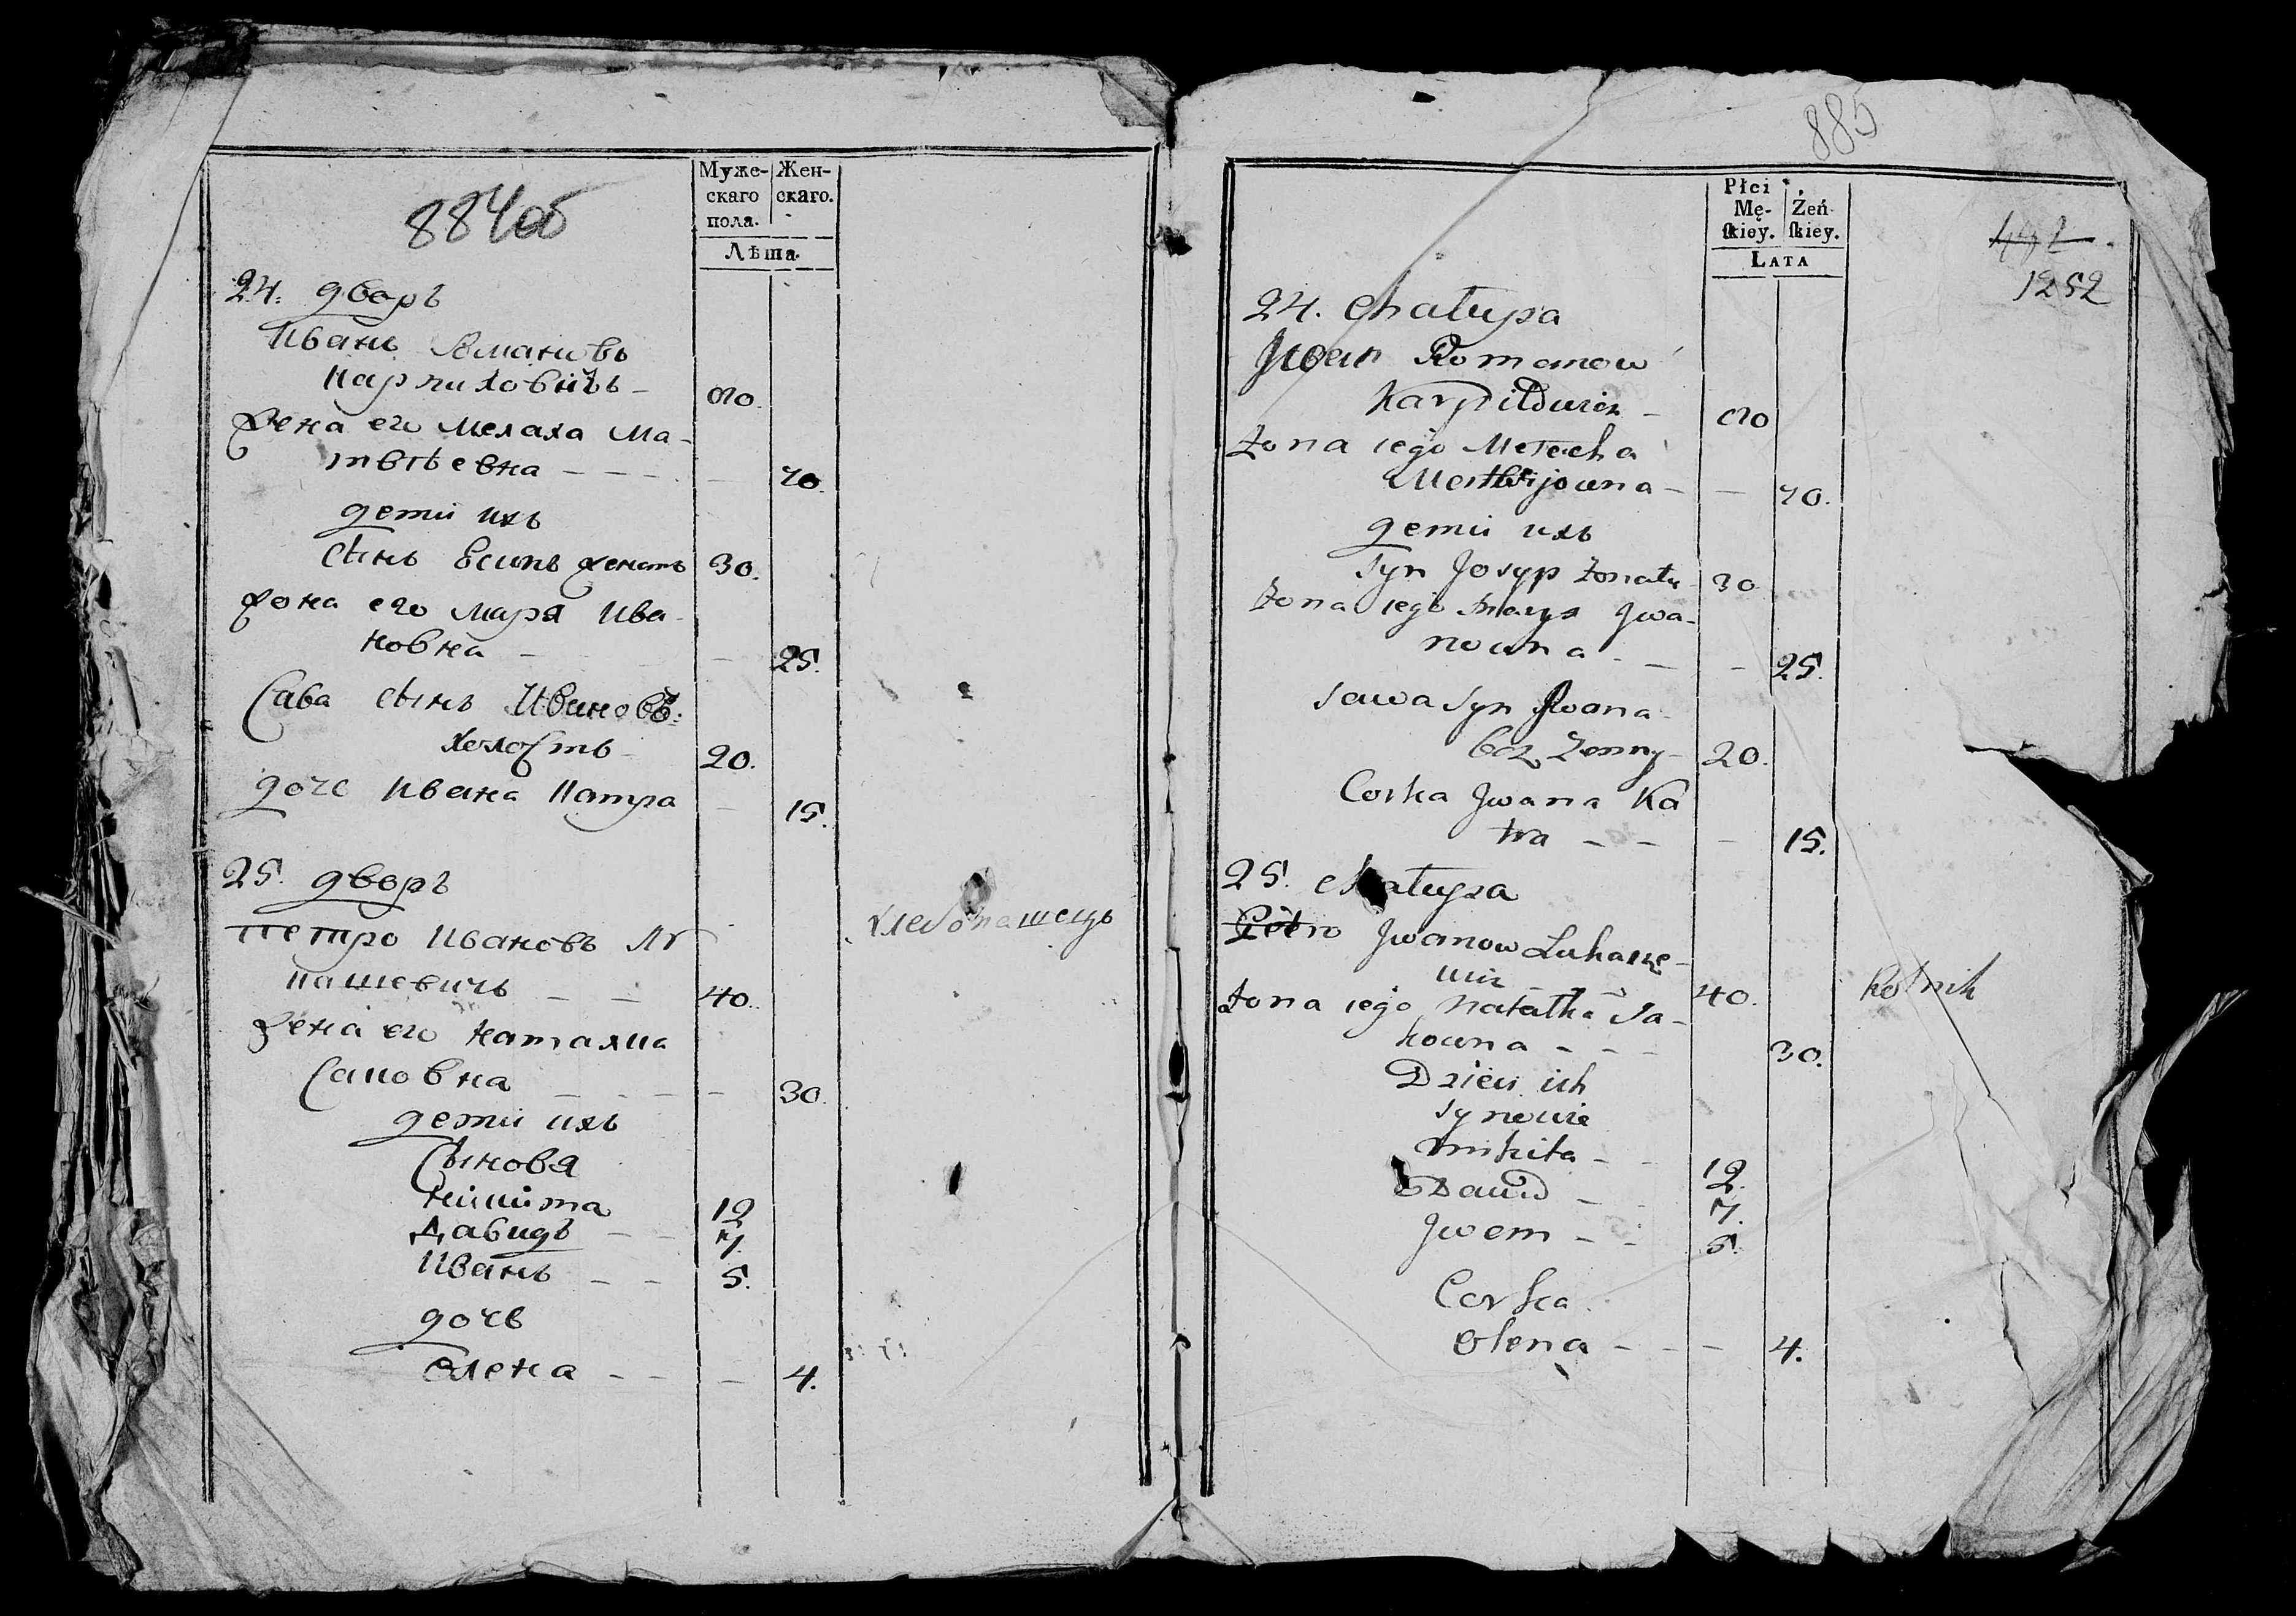 884об
Муже-
скаго
пола.
Жен-
скаго.
Лѣта.
24. дворъ
Иванъ Романовъ
Карпиловичъ –
жена его Мелаха Ма-
твѣевна – – – – 70.
дети ихъ
Сынъ Есипъ женатъ 30.
жона его Маря Ива-
новна – – 25.
Сава сынъ Ивановъ:
холостъ – 20.
доче Ивана Катра – 15.
25. дворъ
Петро Ивановъ Лу
хлебопашецъ
кашевичъ – – 40.
жена его Наталка
Саковна – – – – 30.
дети ихъ
Сыновя
Микита 12
Давидъ – – 7.
Иванъ – – 5.
дочь
Олена – – – 4.
885
Płci
Mę-
ſkiey.
Żeń-
ſkiey.
Lata
1252
24. Chałupa
Jwan Romanow
Karpiłowicz –
żona iego Melacha
Matwijowna – – 70.
дети ихъ
Syn Josyp żonaty 30
żona iego Marya Jwa-
nowna – – – 25.
Sawa Syn Jwana
bez żonny – 20.
Corka Jwana Ka
tra – – – 15.
25. Chałupa
Petro Jwanow Lukasze-
wicz – – 40.
Rolnik
żona iego Natałka Sa-
kowna – – – 30.
Dzieci ich
Synowie
Mikita – – 12.
Dawid – – 7.
Jwan – – 5.
Corka
Olena – – – 4.